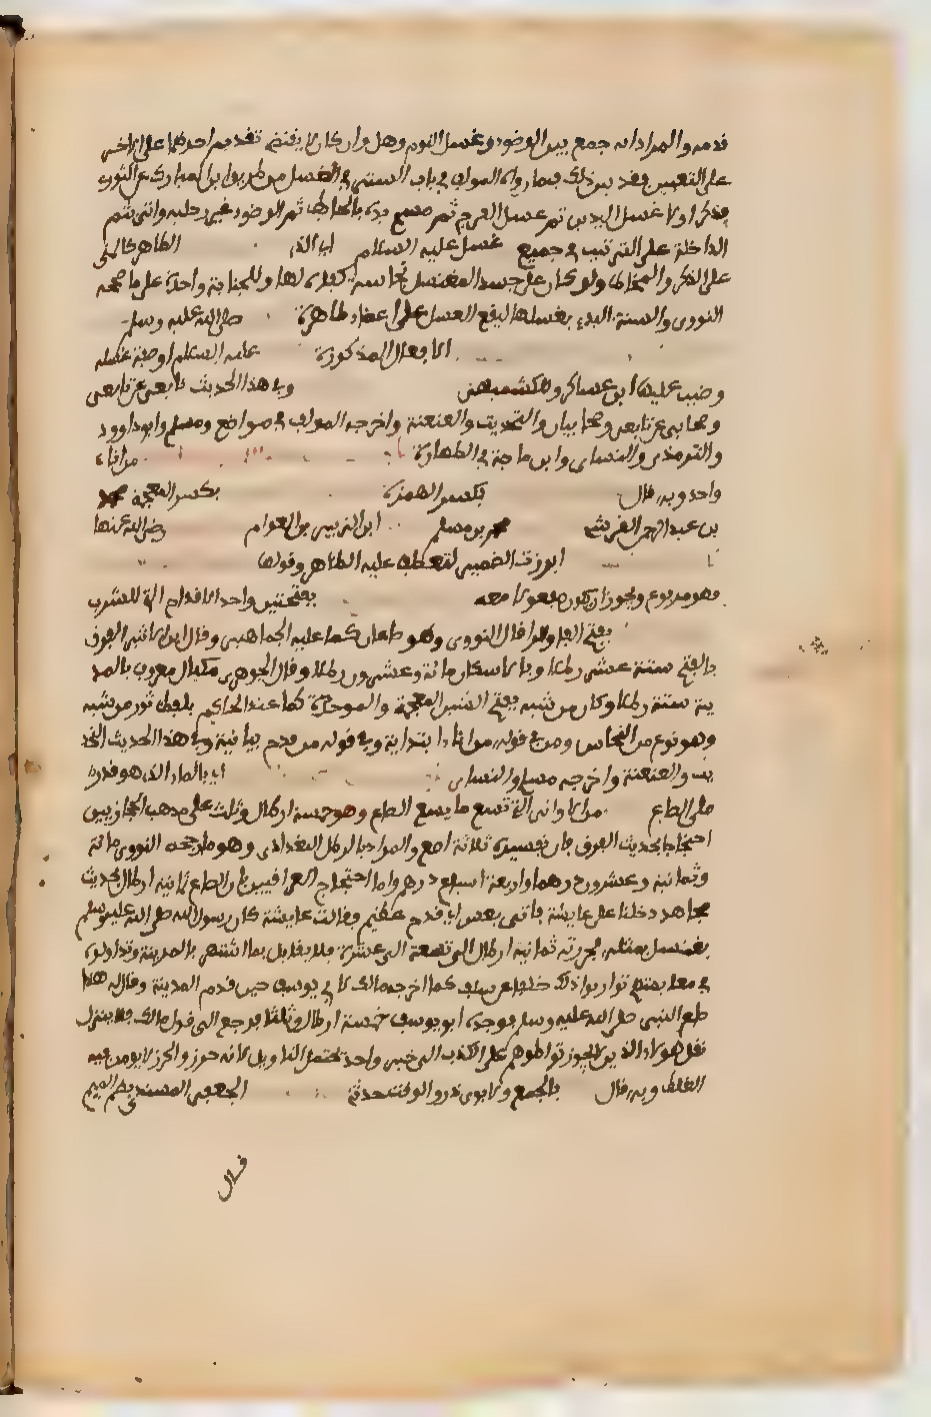 قدمه والمراد انه جمع بين الوضوء وغسل الثوب وهل وان كان لا يقتضي تقديم احدهما على الاخر
على التعيين فقد بين ذلك فيما رواه المولف في باب الستر في الغسل من طريق ابن المبارك عن الثوري
فذكر اولا غسل اليدين ثم غسل الفرج ثم مسح يده بالحائط ثم الوضوء غير رجليه واتى بثم
الدالة على الترتيب في جميع غسل عليه السلام اي الذي الطاهر كالمني
على الذكر والمخاط ولو كان على جسد المغتسل نجاسة كفاه لها وللجنابة واحدة على ما صححه
النووي والسنة البدء بغسلها ليقع الغسل على اعضاء طاهرة صلى الله عليه وسلم
الافعال المذكورة عليه السلام او صفة غسله
وضبب عليها ابن عساكر وللكشميهني وفي هذا الحديث تابعي عن تابعي
وصحابي عن تابعي وصحابيان والتحديث والعنعنة واخرجه المولف في مواضع ومسلم وابو داوود
والترمذي والنساي وابن ماجة في الطهارة من اناء
واحد وبه قال بكسر الهمزة بكسر المعجمة
بن عبد الرحمن القرشي محمد بن مسلم ابن الزبير بن العوام رضي الله عنها
ابرزت الضمير لتعطف عليه الظاهر وقولها
فهو مرفوع ويجوز ان يكون مفعولا معه بفتحتين واحد الاقداح التي للشرب
بفتح الفاء والراء قال النووي وهو كما عليه الجماهير وقال ابن الاثير الفرق
بالفتح ستة عشر رطلا وبالاسكان مائة وعشرون رطلا وقال الجوهري مكيال معروف بالمد
ينة ستة رطلا وكان من شبه بفتح الشين المعجمة والموحدة كما عند الحاكم بلفظ تور من شبه
وهو نوع من النحاس ومن في قوله من اناء ابتداية وفي قوله من قدح بيانية وفي هذا الحديث التحد
يث والعنعنة واخرجه مسلم والنساي اي بالماء الذي هو قدر
ملء الصاع من الاواني التي تسع ما يسع الصاع وهو خمسة ارطال وثلث على مذهب الحجازيين
احتجاجا بحديث الفرق فان تفسيره ثلاثة اصع والمراد بالرطل البغدادي وهو ما رجحه النووي مائة
وثمانية وعشرون درهما واربعة اسباع درهم واما احتجاج العراقيين بان الصاع ثمانية ارطال بحديث
مجاهد دخلنا على عايشة فاتي بعس اي قدح عظيم فقالت عايشة كان رسول الله صلى الله عليه وسلم
يغتسل بمثله فحزرته ثمانية ارطال الى تسعة الى عشرة فلا يقابل بما اشتهر بالمدينة وتداولوه
في معايشهم توارثوا ذلك خلفا عن سلف كما اخرجه مالك لابي يوسف حين قدم المدينة وقال له هذا
صاع النبي صلى الله عليه وسلم فوجده ابو يوسف خمسة ارطال وثلثا فرجع الى قول مالك فلا يترك
نقل هولاء الذين لا يجوز تواطوهم على الكذب الى خبر واحد يحتمل التاويل لانه حزر والحزر لا يومن فيه
الغلط وبه قال بالجمع ولابوي ذر والوقت حدثني الجعفي المسندي بضم الميم
قال